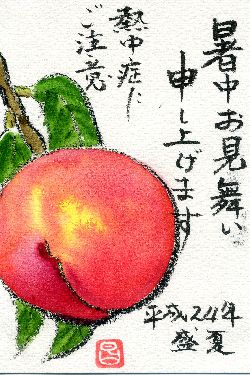 暑中お見舞い
申し上げます
熱中症に
ご注意
平成24年
盛夏